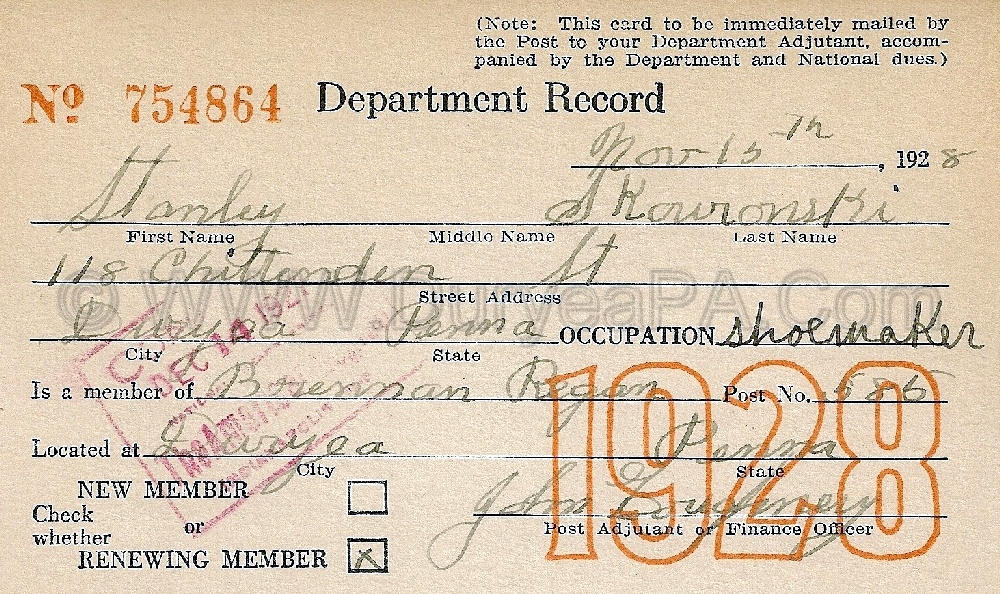 (Note: This card to be immediately mailed by
the Post to your Department Adjutant, accom-
panied by the Department and National dues.)
No 754864 Department Record
Nov 15th, 1928
Stanley Skowronski
First Name Middle Name Last Name
118 Chittenden St
Street Address
© WWW.DuryeaPA.Com
Duryea Penna OCCUPATION shoemaker
City State
DEC 14 192
Is a member of Brennan Regan Post No. 585
Located at Duryea Penna
City State
1928
NEW MEMBER
Check
whether or
John
Post Adjutant or Finance Officer
RENEWING MEMBER X